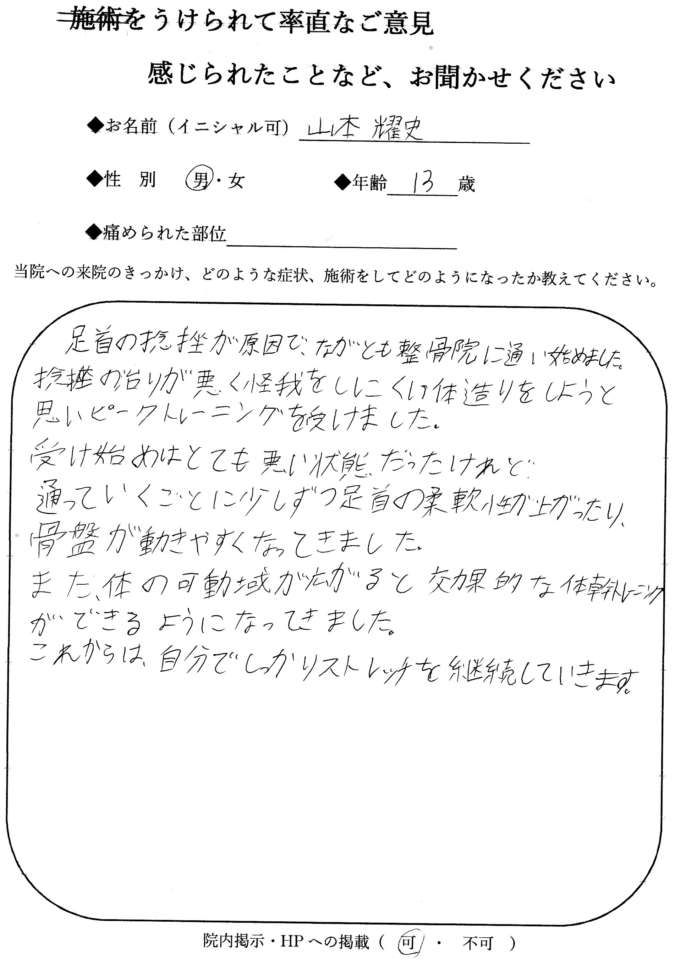 施術をうけられて率直なご意見
感じられたことなど、お聞かせください
◆お名前（イニシャル可） 山本 耀史
◆性 別 男・女 ◆年齢 13 歳
◆痛められた部位
当院への来院のきっかけ、どのような症状、施術をしてどのようになったか教えてください。
足首の捻挫が原因で、ながとも整骨院に通い始めました。
捻挫の治りが悪く怪我をしにくい体造りをしようと
思いピークトレーニングを受けました。
受け始めはとても悪い状態だったけれど
通っていくごとに少しずつ足首の柔軟性が上がったり、
骨盤が動きやすくなってきました。
また、体の可動域が広がると効果的な体幹トレーニング
ができるようになってきました。
これからは、自分でしっかりストレッチを継続していきます。
院内掲示・HPへの掲載（ 可 ・ 不可 ）